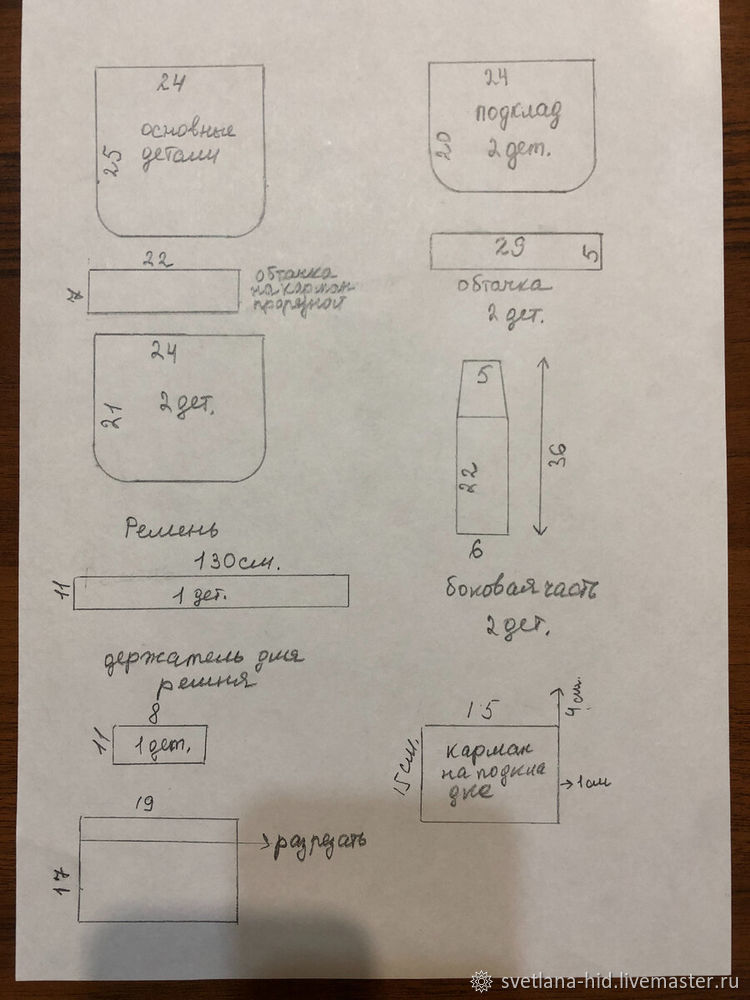 24
основные
детали
25
22
7
обтачка
на карман
прорезной
24
21
2 дет.
Ремень
130 см.
11
1 дет.
держатель для
ремня
8
11
1 дет.
19
17
разрезать
24
подклад
20
2 дет.
29
5
обтачка
2 дет.
5
22
36
6
боковая часть
2 дет.
15
4 см.
15 см.
карман
на подкла
дке
1 см
svetlana-hid.livemaster.ru